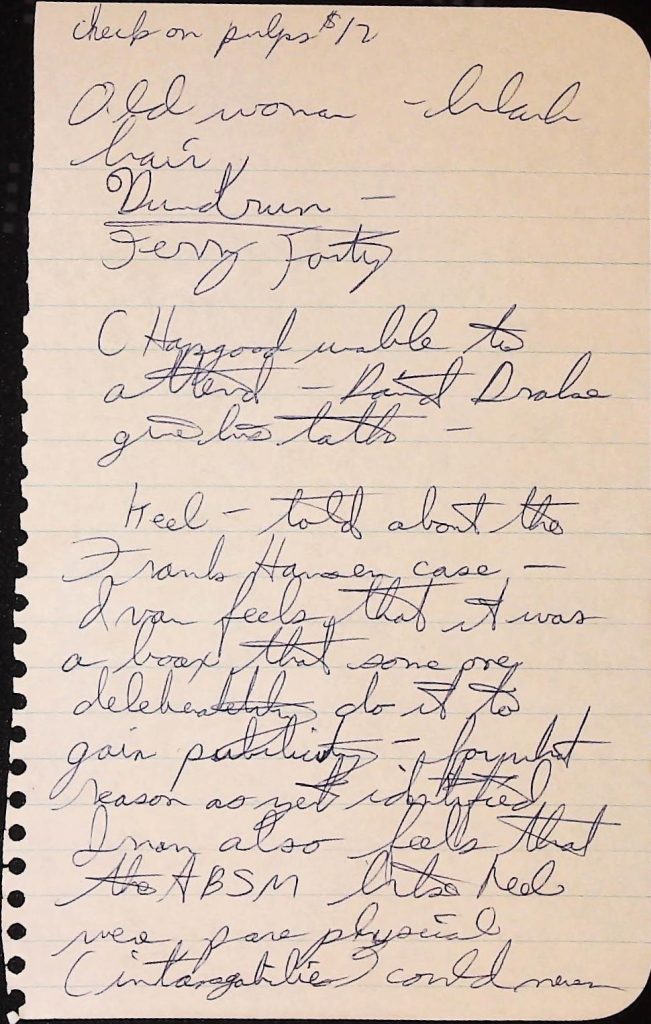 check on pulps $12
Old woman - black
hair
Dundrum -
Jerry Forty
C Hapgood unable to
attend - David Drake
give his talk -
Keel - told about the
Frank Hansen case -
Ivan feels that it was
a hoax that some one
do it to
gain publicity - for what
reason as yet identified
Ivan also feels that
the ABSM like Keel
were para physical
(intangibilities) could never